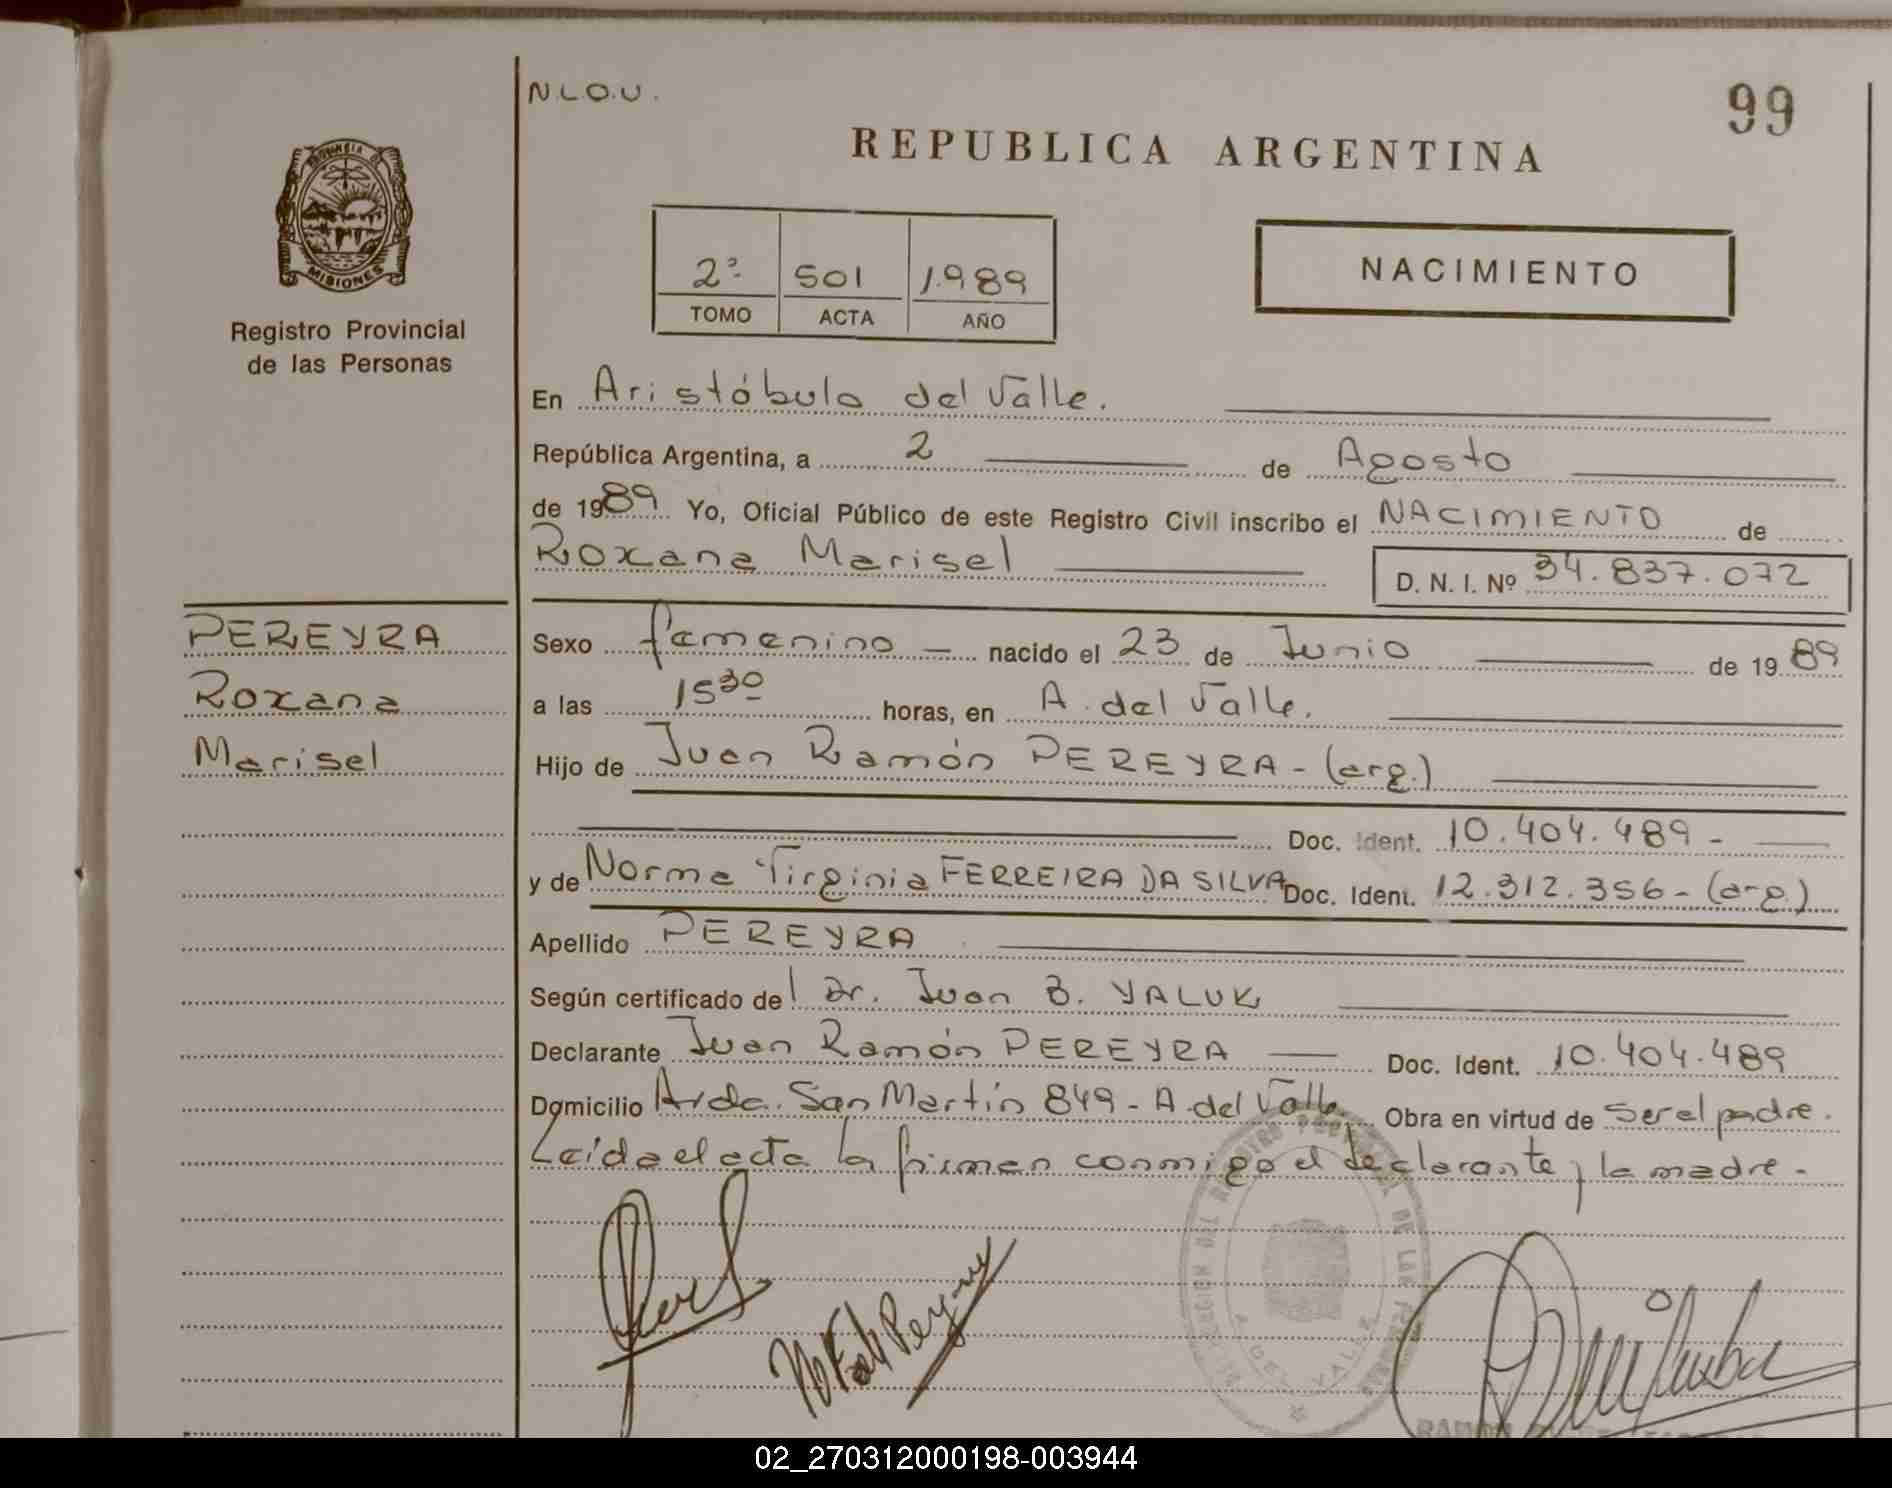 N.L.O.U.
99
REPUBLICA ARGENTINA
PROVINCIA DE
MISIONES
Registro Provincial
de las Personas
2º 501 1.989
TOMO ACTA AÑO
NACIMIENTO
En Aristóbulo del Valle.
República Argentina, a 2 de Agosto
de 1989 Yo, Oficial Público de este Registro Civil inscribo el NACIMIENTO de
Roxana Marisel
D. N. I. Nº 34.837.072
PEREYRA
Roxana
Marisel
Sexo femenino — nacido el 23 de Junio de 1989
a las 15 30 horas, en A. del Valle.
Hijo de Juan Ramón PEREYRA - (arg.)
Doc. Ident. 10.404.489 -
y de Norma Virginia FERREIRA DA SILVA Doc. Ident. 12.312.356 - (arg.)
Apellido PEREYRA
Según certificado del Dr. Juan B. YALUK
Declarante Juan Ramón PEREYRA — Doc. Ident. 10.404.489
Domicilio Avda. San Martín 849 - A. del Valle Obra en virtud de ser el padre.
Leída el acta la firman conmigo el declarante y la madre -
A. DEL VALLE
02_270312000198-003944